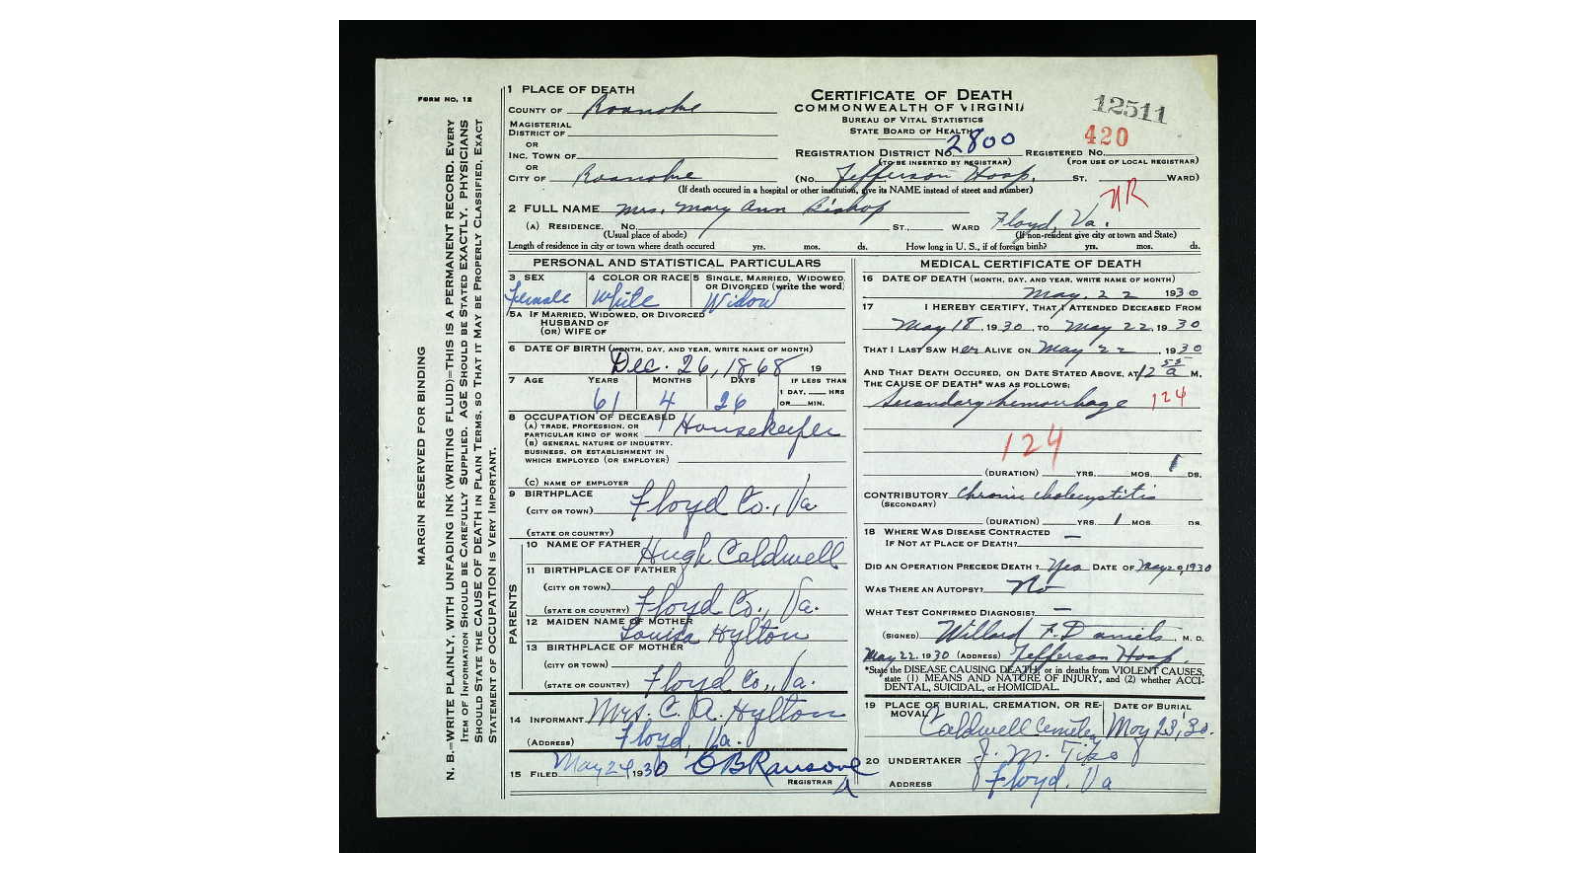 FORM NO. 12
MARGIN RESERVED FOR BINDING
N. B.—WRITE PLAINLY, WITH UNFADING INK (WRITING FLUID)—THIS IS A PERMANENT RECORD. EVERY
ITEM OF INFORMATION SHOULD BE CAREFULLY SUPPLIED. AGE SHOULD BE STATED EXACTLY. PHYSICIANS
SHOULD STATE THE CAUSE OF DEATH IN PLAIN TERMS, SO THAT IT MAY BE PROPERLY CLASSIFIED. EXACT
STATEMENT OF OCCUPATION IS VERY IMPORTANT.
1 PLACE OF DEATH
COUNTY OF Roanoke
MAGISTERIAL
DISTRICT OF
OR
INC. TOWN OF
OR
CITY OF Roanoke
CERTIFICATE OF DEATH
COMMONWEALTH OF VIRGINIA
BUREAU OF VITAL STATISTICS
STATE BOARD OF HEALTH
12511
420
REGISTRATION DISTRICT NO. 2800 REGISTERED NO.
(TO BE INSERTED BY REGISTRAR) (FOR USE OF LOCAL REGISTRAR)
(No. Jefferson Hosp. ST. WARD)
(If death occured in a hospital or other institution, give its NAME instead of street and number)
NR
2 FULL NAME Mrs. Mary Ann Bishop
(A) RESIDENCE. No. ST., WARD Floyd, Va.
(Usual place of abode) (If non-resident give city or town and State)
Length of residence in city or town where death occured yrs. mos. ds. How long in U. S., if of foreign birth? yrs. mos. ds.
PERSONAL AND STATISTICAL PARTICULARS
3 SEX 4 COLOR OR RACE 5 SINGLE, MARRIED, WIDOWED
OR DIVORCED (write the word)
Female White Widow
5A IF MARRIED, WIDOWED, OR DIVORCED
HUSBAND OF
(OR) WIFE OF
6 DATE OF BIRTH (MONTH, DAY, AND YEAR, WRITE NAME OF MONTH)
Dec. 26, 1868 19
7 AGE YEARS MONTHS DAYS IF LESS THAN
1 DAY, HRS
OR MIN.
61 4 26
8 OCCUPATION OF DECEASED
(A) TRADE, PROFESSION, OR
PARTICULAR KIND OF WORK Housekeeper
(B) GENERAL NATURE OF INDUSTRY.
BUSINESS, OR ESTABLISHMENT IN
WHICH EMPLOYED (OR EMPLOYER)
(C) NAME OF EMPLOYER
9 BIRTHPLACE
(CITY OR TOWN) Floyd Co., Va
(STATE OR COUNTRY)
PARENTS
10 NAME OF FATHER Hugh Caldwell
11 BIRTHPLACE OF FATHER
(CITY OR TOWN)
(STATE OR COUNTRY) Floyd Co., Va.
12 MAIDEN NAME OF MOTHER
Louisa Hylton
13 BIRTHPLACE OF MOTHER
(CITY OR TOWN)
(STATE OR COUNTRY) Floyd Co., Va.
14 INFORMANT Mrs. C. A. Hylton
(ADDRESS) Floyd, Va.
15 FILED May 24 1930 O B Ransone
REGISTRAR
MEDICAL CERTIFICATE OF DEATH
16 DATE OF DEATH (MONTH, DAY, AND YEAR, WRITE NAME OF MONTH)
May. 22 1930
17 I HEREBY CERTIFY, THAT I ATTENDED DECEASED FROM
May 18, 1930, TO May 22, 1930
THAT I LAST SAW Her ALIVE ON May 22, 1930
AND THAT DEATH OCCURED, ON DATE STATED ABOVE, AT 12 55 a M.
THE CAUSE OF DEATH* WAS AS FOLLOWS:
Secondary hemorrhage 124
124
(DURATION) YRS. MOS. 1 DS.
CONTRIBUTORY Chronic cholecystitis
(SECONDARY)
(DURATION) YRS. 1 MOS. DS.
18 WHERE WAS DISEASE CONTRACTED
IF NOT AT PLACE OF DEATH? —
DID AN OPERATION PRECEDE DEATH? Yes DATE OF May 20, 1930
WAS THERE AN AUTOPSY? No
WHAT TEST CONFIRMED DIAGNOSIS? —
(SIGNED) Willard F. Daniels, M. D.
May 22, 1930 (ADDRESS) Jefferson Hosp.
*State the DISEASE CAUSING DEATH, or in deaths from VIOLENT CAUSES,
state (1) MEANS AND NATURE OF INJURY, and (2) whether ACCI-
DENTAL, SUICIDAL, or HOMICIDAL.
19 PLACE OF BURIAL, CREMATION, OR RE-
MOVAL DATE OF BURIAL
Caldwell Cemetery May 23, 30.
20 UNDERTAKER J. M.
ADDRESS Floyd. Va